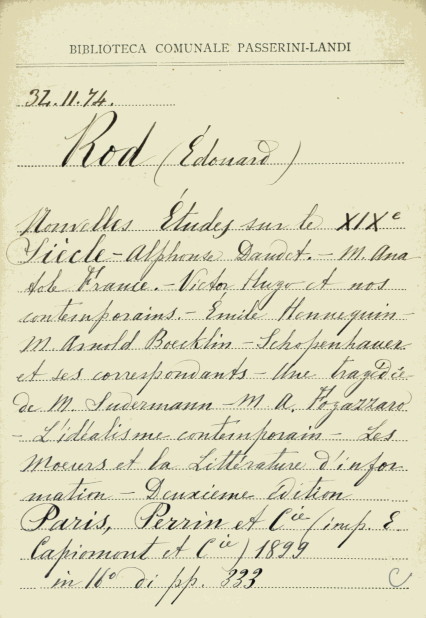 BIBLIOTECA COMUNALE PASSERINI-LANDI
32.11.74.
Rod (Édouard)
Nouvelles Études sur le XIXe
Siècle - Alphonse Daudet. - M. Ana
tole France. - Victor Hugo et nos
contemporains. - Emile Hennequin -
M. Arnold Boecklin - Schopenhauer
et ses correspondants - Une tragédie
de M. Sudermann - M. A. Fogazzaro
- L'idéalisme contemporain - Les
Moeurs et la Littérature d'infor
mation - Deuxième édition
Paris, Perrin et Cie (imp. E.
Capiomont et Cie) 1899
in 16° di pp. 333 C